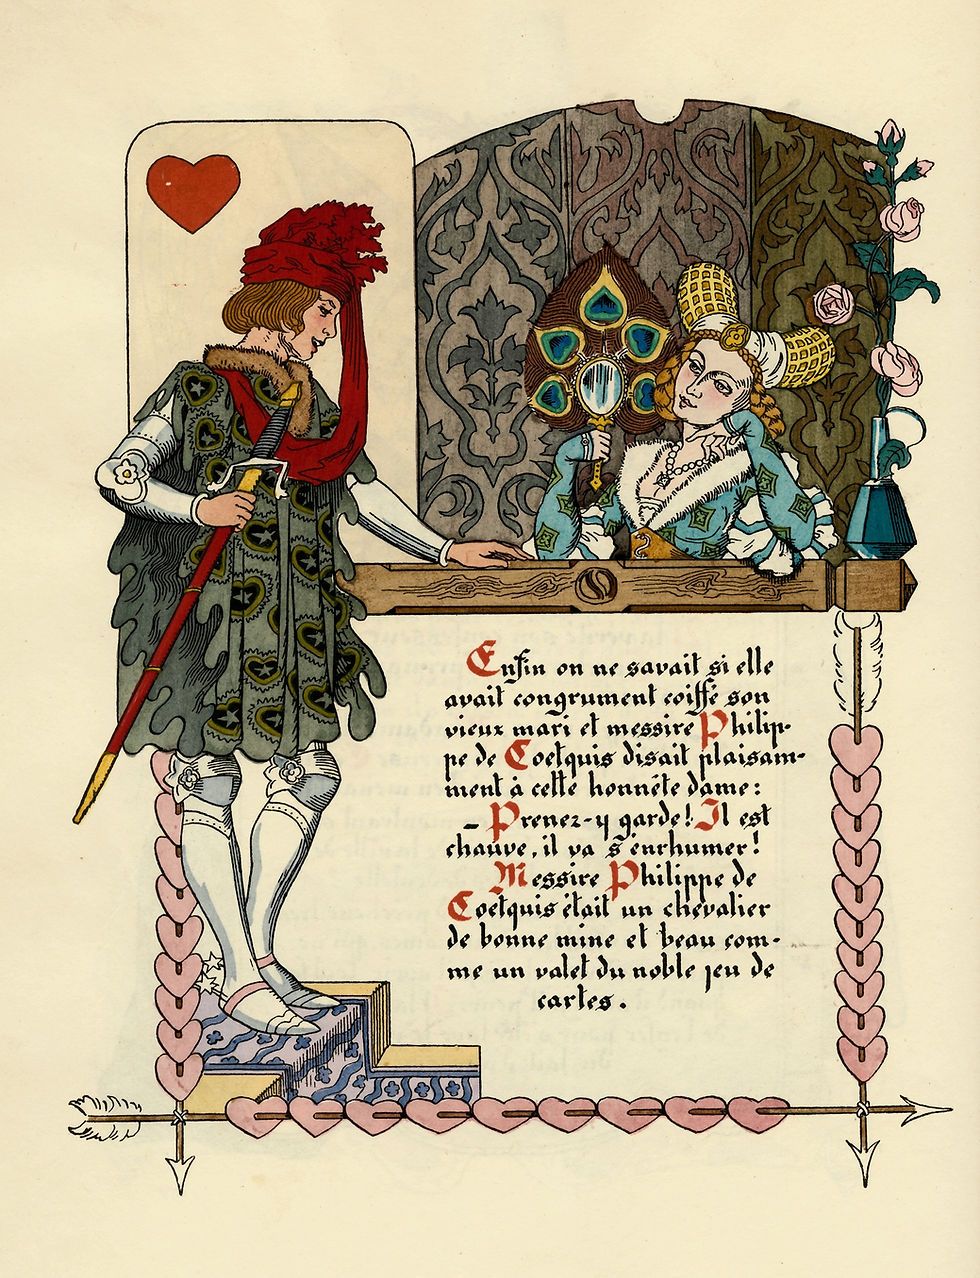 Enfin on ne savait si elle
avait congrument coiffé son
vieux mari et messire Philip-
pe de Coetquis disait plaisam-
ment à cette honnête dame :
– Prenez-y garde! Il est
chauve, il va s'enrhumer!
Messire Philippe de
Coetquis était un chevalier
de bonne mine et beau com-
me un valet du noble jeu de
cartes.